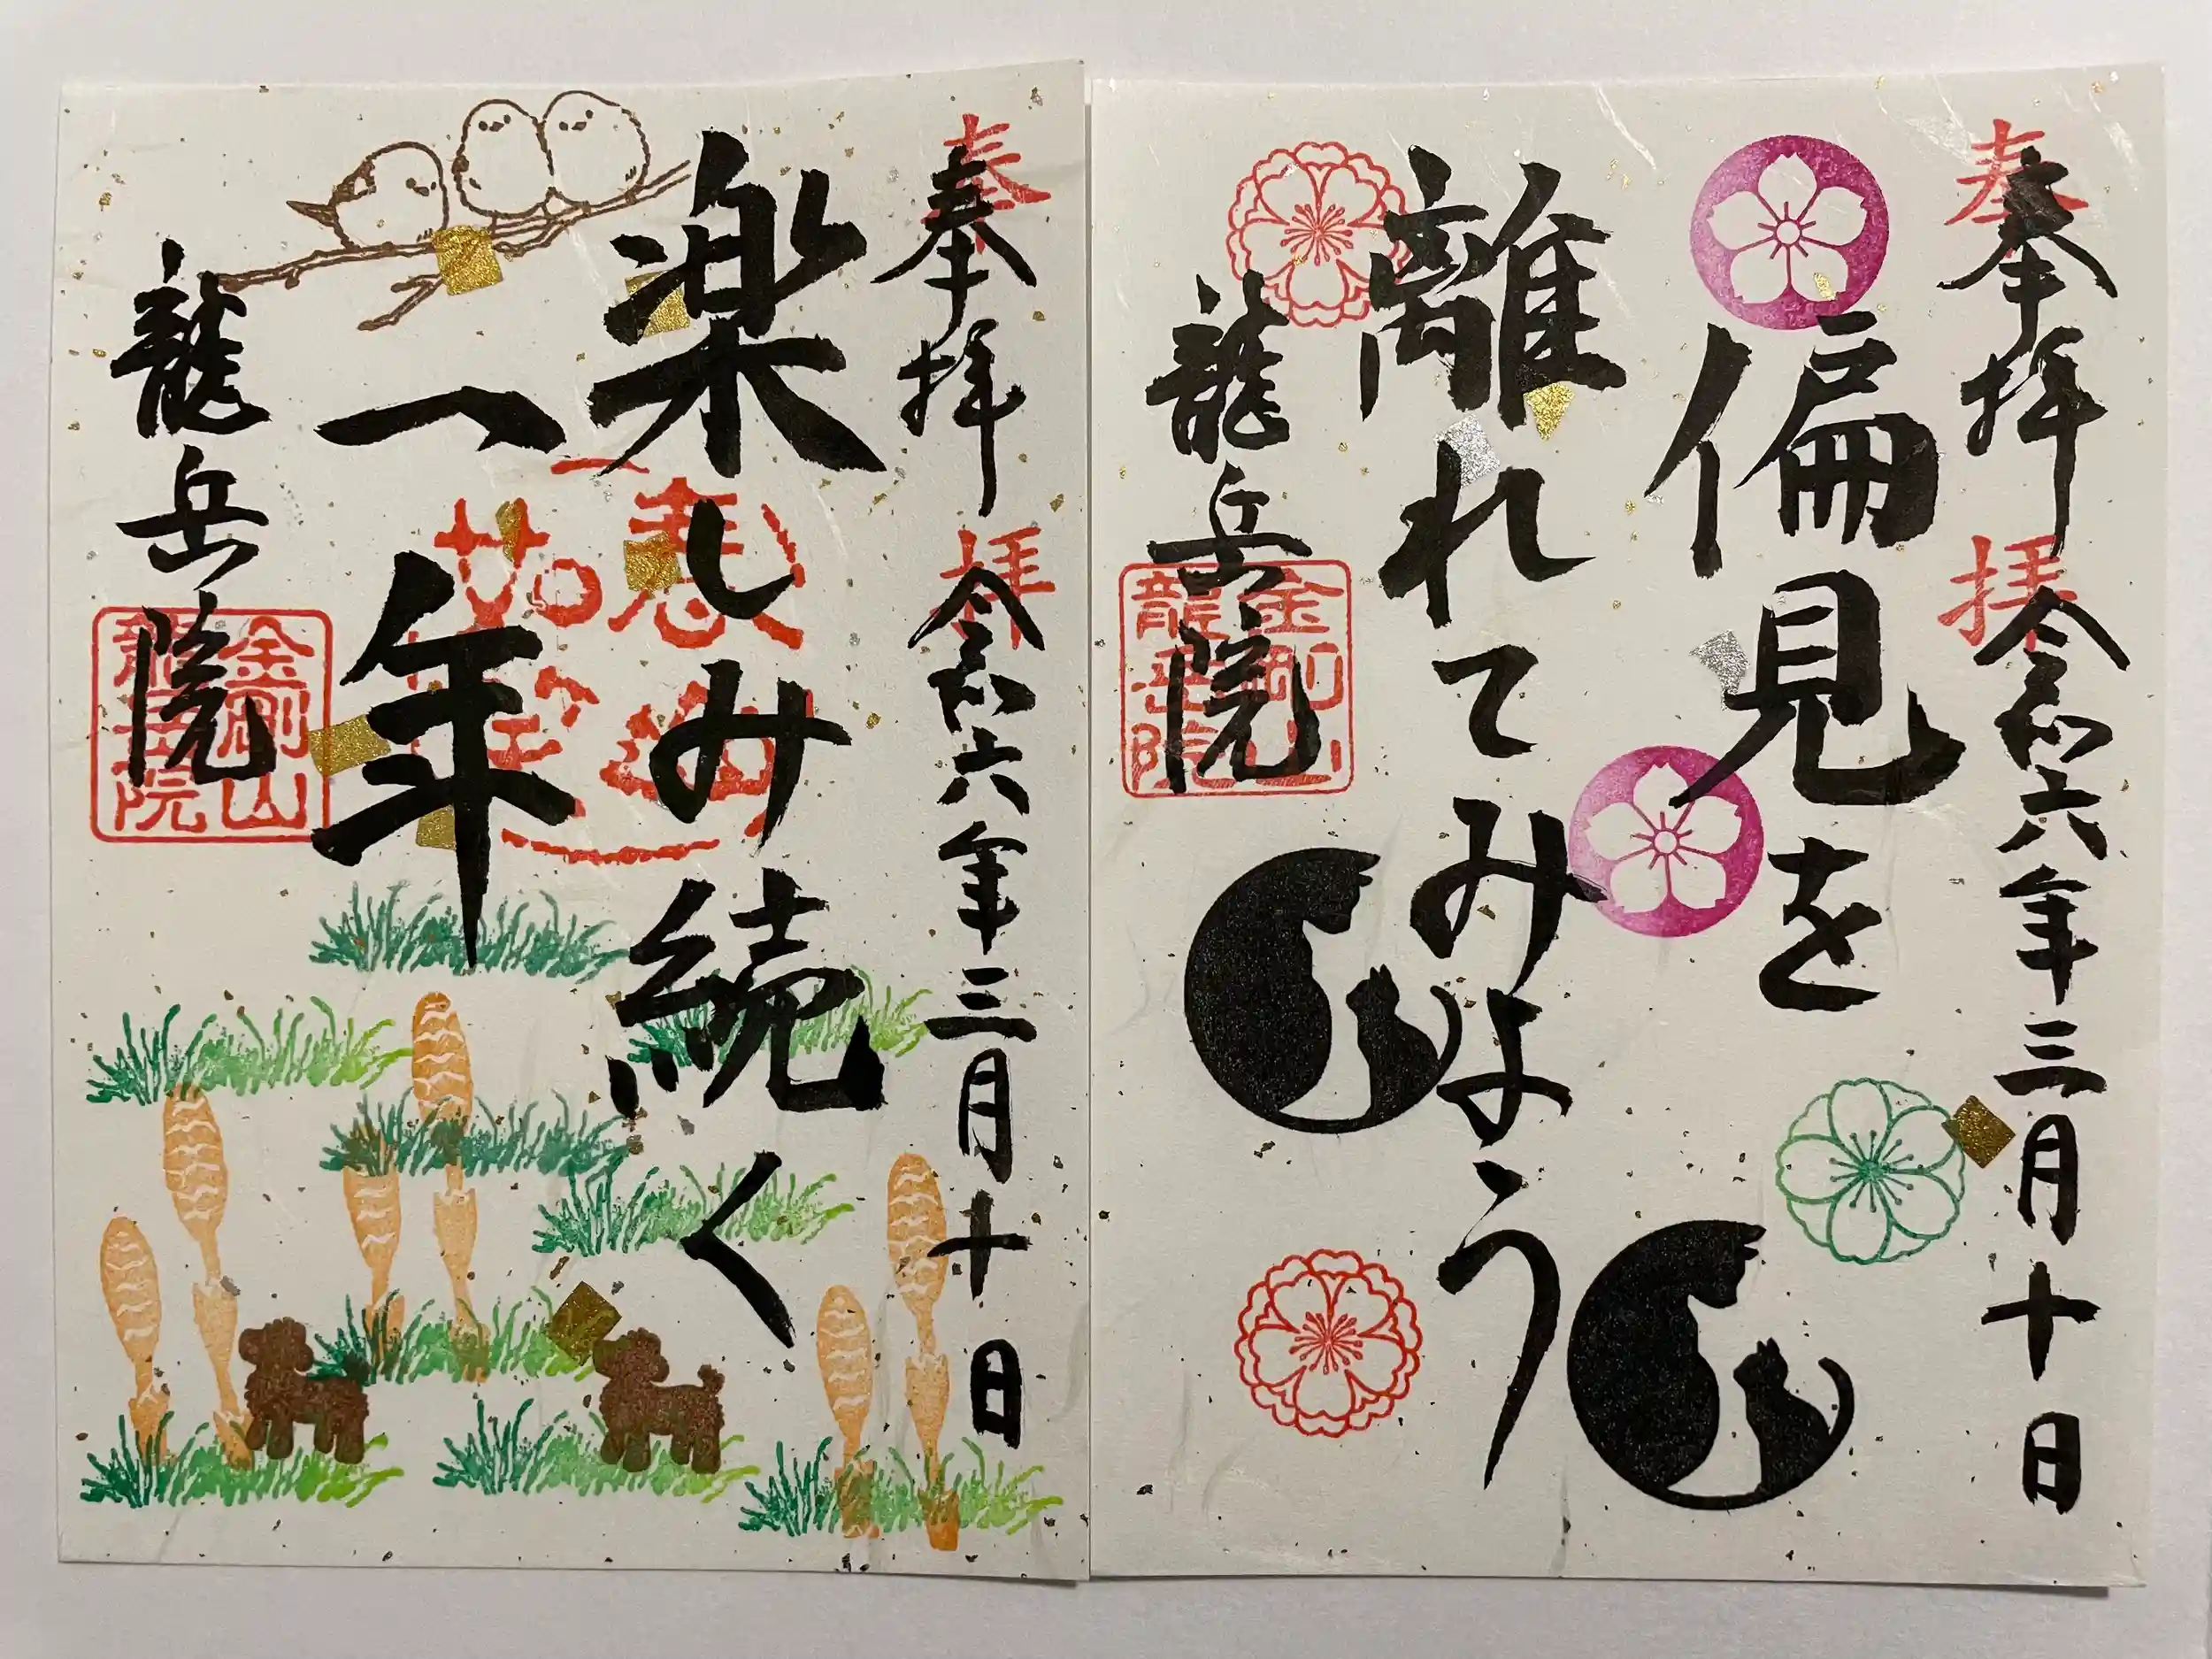 奉拝 令和六年三月十日
奉拝
偏見を
離れてみよう
龍岳院
金剛山
龍岳院
奉拝 令和六年三月十日
奉拝
楽しみ続く
一年
龍岳院
金剛山
龍岳院